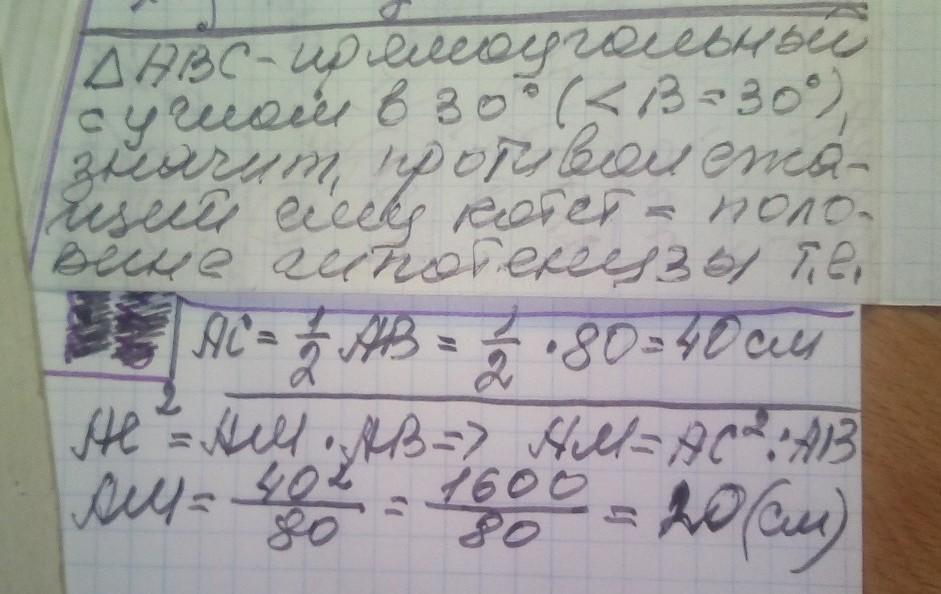 △ABC - прямоугольный
с углом в 30° (<B = 30°),
значит, противолежа-
щий ему катет = поло-
вине гипотенузы т.е.
AC = 1/2 AB = 1/2 · 80 = 40 см
AC² = AM · AB => AM = AC² : AB
AM = 40²/80 = 1600/80 = 20 (см)